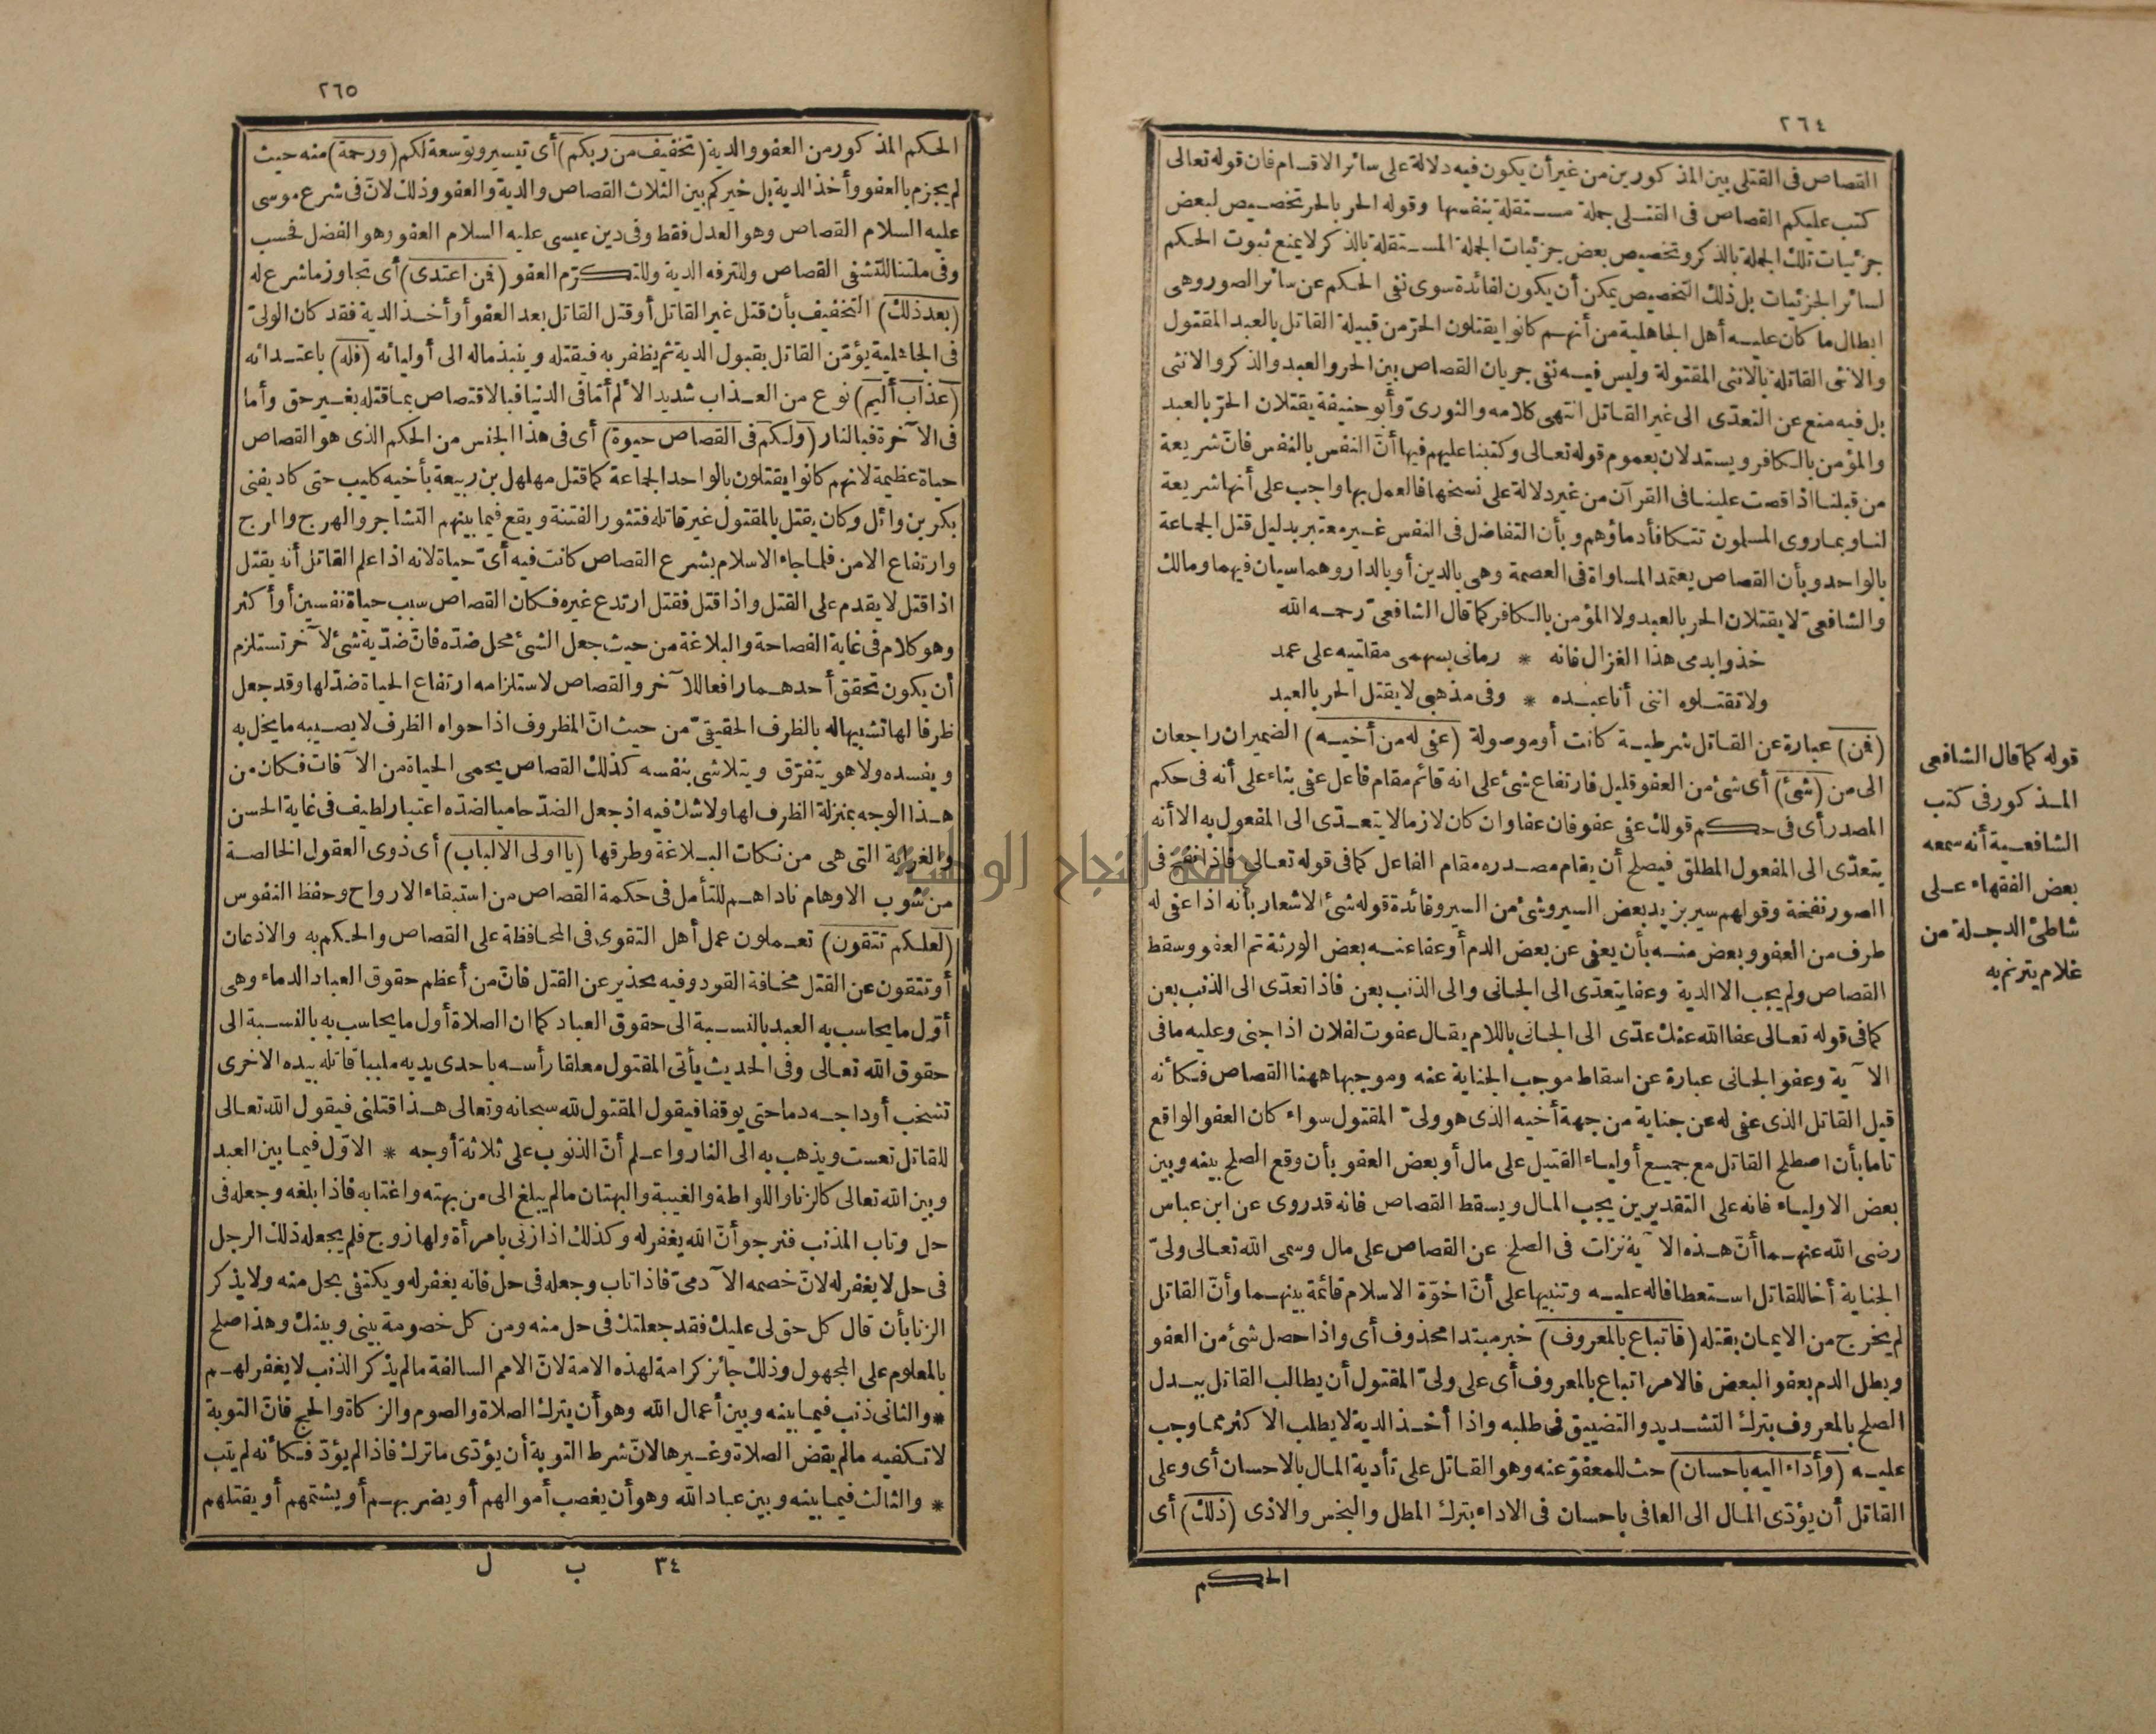 ٢٦٤
القصاص فى القتلى بين المذكورين من غير أن يكون فيه دلالة على سائر الاقسام فان قوله تعالى
كتب عليكم القصاص فى القتلى جملة مستقلة بنفسها وقوله الحر بالحر تخصيص لبعض
جزئيات تلك الجملة بالذكر وتخصيص بعض جزئيات الجملة المستقلة بالذكر لا يمنع ثبوت الحكم
لسائر الجزئيات بل ذلك التخصيص يمكن أن يكون لفائدة سوى نفى الحكم عن سائر الصور وهى
ابطال ما كان عليه أهل الجاهلية من أنهم كانوا يقتلون الحرّ من قبيلة القاتل بالعبد المقتول
والانثى القاتلة بالانثى المقتولة وليس فيه نفى جريان القصاص بين الحر والعبد والذكر والانثى
بل فيه منع عن التعدّى الى غير القاتل انتهى كلامه والثورىّ وأبو حنيفة يقتلان الحرّ بالعبد
والمؤمن بالكافر ويستدلان بعموم قوله تعالى وكتبنا عليهم فيها أنّ النفس بالنفس فانّ شريعة
من قبلنا اذا قصت علينا فى القرآن من غير دلالة على نسخها فالعمل بها واجب على أنها شريعة
لنا وبما روى المسلمون تتكافأ دماؤهم وبأن التفاضل فى النفس غير معتبر بدليل قتل الجماعة
بالواحد وبأن القصاص يعتمد المساواة فى العصمة وهى بالدين أو بالدار وهما سيان فيهما ومالك
والشافعىّ لا يقتلان الحر بالعبد ولا المؤمن بالكافر كما قال الشافعىّ رحمه الله
خذوا بدمى هذا الغزال فانه * رمانى بسهمى مقلتيه على عمد
ولا تقتلوه اننى أنا عبده * وفى مذهبى لا يقتل الحر بالعبد
(فمن) عبارة عن القاتل شرطية كانت أو موصولة (عفى له من أخيه) الضميران راجعان
الى من (شئ) أى شئ من العفو قليل فارتفاع شئ على انه قائم مقام فاعل عفى بناء على أنه فى حكم
المصدر أى فى حكم قولك عفى عفو فان عفا وان كان لازما لا يتعدّى الى المفعول به الا أنه
يتعدّى الى المفعول المطلق فيصلح أن يقام مصدره مقام الفاعل كما فى قوله تعالى فاذا نفخ فى
الصور نفخة وقولهم سير بزيد بعض السير وشئ من السير وفائدة قوله شئ الاشعار بأنه اذا عفى له
طرف من العفو وبعض منه بأن يعفى عن بعض الدم أو عفا عنه بعض الورثة تم العفو وسقط
القصاص ولم يجب الا الدية وعفا يتعدّى الى الجانى والى الذنب بعن فاذا تعدّى الى الذنب بعن
كما فى قوله تعالى عفا الله عنك عدّى الى الجانى باللام يقال عفوت لفلان اذا جنى وعليه ما فى
الآية وعفو الجانى عبارة عن اسقاط موجب الجناية عنه وموجبها ههنا القصاص فكأنه
قيل القاتل الذى عفى له عن جناية من جهة أخيه الذى هو ولىّ المقتول سواء كان العفو الواقع
تاما بأن اصطلح القاتل مع جميع أولياء القتيل على مال أو بعض العفو بأن وقع الصلح بينه وبين
بعض الاولياء فانه على التقديرين يجب المال ويسقط القصاص فانه قد روى عن ابن عباس
رضى الله عنهما أنّ هذه الآية نزلت فى الصلح عن القصاص على مال وسمى الله تعالى ولىّ
الجناية أخا للقاتل استعطافا له عليه وتنبيها على أنّ اخوّة الاسلام قائمة بينهما وأنّ القاتل
لم يخرج من الايمان بقتله (فاتباع بالمعروف) خبر مبتدا محذوف أى واذا حصل شئ من العفو
وبطل الدم بعفو البعض فالامر اتباع بالمعروف أى على ولىّ المقتول أن يطالب القاتل ببدل
الصلح بالمعروف بترك التشديد والتضييق فى طلبه واذا أخذ الدية لا يطلب الاكثر مما وجب
عليه (وأداء اليه باحسان) حث للمعفوّ عنه وهو القاتل على تأدية المال بالاحسان أى وعلى
القاتل أن يؤدّى المال الى العافى باحسان فى الاداء بترك المطل والبخس والاذى (ذلك) أى
الحكم
قوله كما قال الشافعى
المذكور فى كتب
الشافعية أنه سمعه
بعض الفقهاء على
شاطئ الدجلة من
غلام يترنم به
٢٦٥
الحكم المذكور من العفو والدية (تخفيف من ربكم) أى تيسير وتوسعة لكم (ورحمة) منه حيث
لم يجزم بالعفو وأخذ الدية بل خيركم بين الثلاث القصاص والدية والعفو وذلك لانّ فى شرع موسى
عليه السلام القصاص وهو العدل فقط وفى دين عيسى عليه السلام العفو وهو الفضل فحسب
وفى ملتنا للتشفى القصاص وللترفه الدية وللتكرّم العفو (فمن اعتدى) أى تجاوز ما شرع له
(بعد ذلك) التخفيف بأن قتل غير القاتل أو قتل القاتل بعد العفو أو أخذ الدية فقد كان الولىّ
فى الجاهلية يؤمّن القاتل بقبول الدية ثم يظفر به فيقتله وينبذ ماله الى أوليائه (فله) باعتدائه
(عذاب أليم) نوع من العذاب شديد الألم أمّا فى الدنيا فبالاقتصاص بما قتله بغير حق وأما
فى الآخرة فبالنار (ولكم فى القصاص حيوة) أى فى هذا الجنس من الحكم الذى هو القصاص
حياة عظيمة لانهم كانوا يقتلون بالواحد الجماعة كما قتل مهلهل بن ربيعة بأخيه كليب حتى كاد يفنى
بكر بن وائل وكان يقتل بالمقتول غير قاتله فتثور الفتنة ويقع فيما بينهم التشاجر والهرج والمرج
وارتفاع الامن فلما جاء الاسلام بشرع القصاص كانت فيه أىّ حياة لانه اذا علم القاتل أنه يقتل
اذا قتل لا يقدم على القتل واذا قتل فقتل ارتدع غيره فكان القصاص سبب حياة نفسين أو أكثر
وهو كلام فى غاية الفصاحة والبلاغة من حيث جعل الشئ محل ضدّه فانّ ضدّية شئ لآخر تستلزم
أن يكون تحقق أحدهما رافعا للآخر والقصاص لاستلزامه ارتفاع الحياة ضدّ لها وقد جعل
ظرفا لها تشبيها له بالظرف الحقيقىّ من حيث انّ المظروف اذا حواه الظرف لا يصيبه ما يخل به
ويفسده ولا هو يتفرّق ويتلاشى بنفسه كذلك القصاص يحمى الحياة من الآفات فكان من
هذا الوجه بمنزلة الظرف لها ولا شك فيه اذ جعل الضدّ حاميا لضدّه اعتبار لطيف فى غاية الحسن
والغرابة التى هى من نكات البلاغة وطرقها (يا اولى الالباب) أى ذوى العقول الخالصة
من شوب الاوهام ناداهم للتأمل فى حكمة القصاص من استبقاء الارواح وحفظ النفوس
(لعلكم تتقون) تعملون عمل أهل التقوى فى المحافظة على القصاص والحكم به والاذعان
أو تتقون عن القتل مخافة القود وفيه تحذير عن القتل فانّ من أعظم حقوق العباد الدماء وهى
أوّل ما يحاسب به العبد بالنسبة الى حقوق العباد كما ان الصلاة أول ما يحاسب به بالنسبة الى
حقوق الله تعالى وفى الحديث يأتى المقتول معلقا رأسه باحدى يديه ملببا قاتله بيده الاخرى
تشخب أوداجه دما حتى يوقفا فيقول المقتول لله سبحانه وتعالى هذا قتلنى فيقول الله تعالى
للقاتل تعست ويذهب به الى النار واعلم أنّ الذنوب على ثلاثة أوجه * الاوّل فيما بين العبد
وبين الله تعالى كالزنا واللواطة والغيبة والبهتان ما لم يبلغ الى من بهته واغتابه فاذا بلغه وجعله فى
حل وتاب المذنب فنرجو أنّ الله يغفر له وكذلك اذا زنى بامرأة ولها زوج فلم يجعله ذلك الرجل
فى حل لا يغفر له لانّ خصمه الآدمىّ فاذا تاب وجعله فى حل فانه يغفر له ويكتفى بحل منه ولا يذكر
الزنا بأن قال كل حق لى عليك فقد جعلتك فى حل منه ومن كل خصومة بينى وبينك وهذا صلح
بالمعلوم على المجهول وذلك جائز كرامة لهذه الامة لانّ الامم السالفة ما لم يذكر الذنب لا يغفر لهم
* والثانى ذنب فيما بينه وبين أعمال الله وهو أن يترك الصلاة والصوم والزكاة والحج فانّ التوبة
لا تكفيه ما لم يقض الصلاة وغيرها لانّ شرط التوبة أن يؤدّى ما ترك فاذا لم يؤدّ فكأنه لم يتب
* والثالث فيما بينه وبين عباد الله وهو أن يغصب أموالهم أو يضربهم أو يشتمهم أو يقتلهم
٣٤ ب ل
جامعة النجاح الوطنية